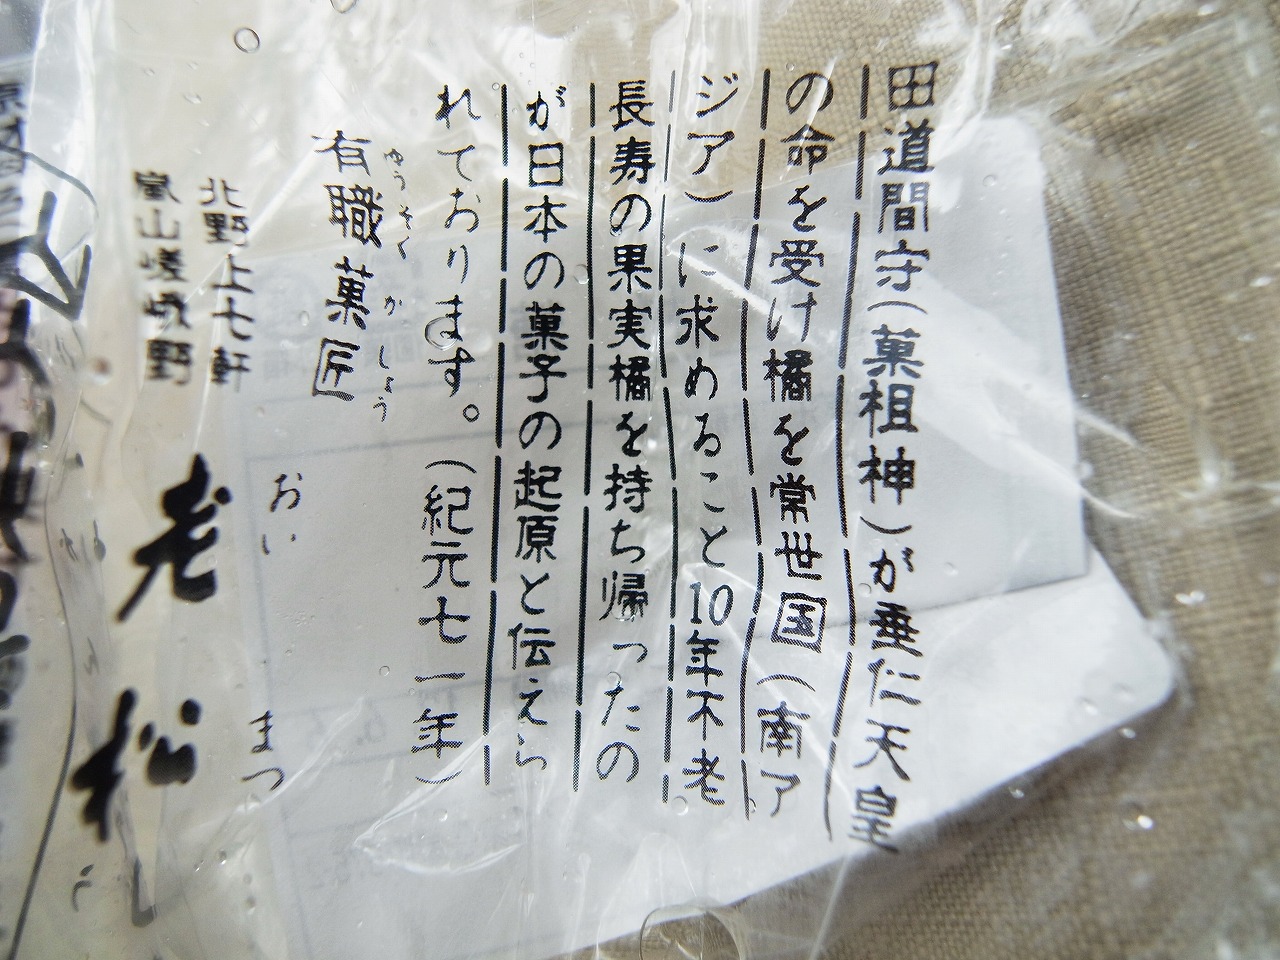 田道間守（菓祖神）が垂仁天皇
の命を受け橘を常世国（南ア
ジア）に求めること10年不老
長寿の果実橘を持ち帰ったの
が日本の菓子の起原と伝えら
れております。（紀元七一年）
ゆうそく かしょう
有職菓匠
おいまつ
老松
北野上七軒
嵐山嵯峨野